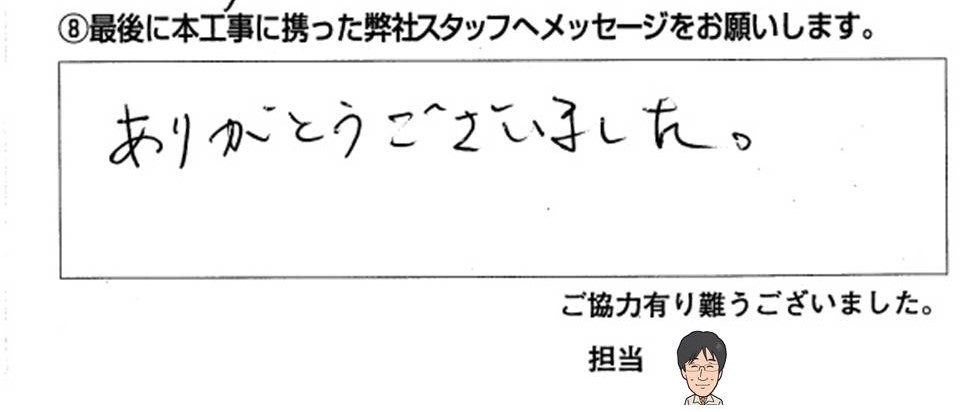 ⑧最後に本工事に携った弊社スタッフへメッセージをお願いします。
ありがとうございました。
ご協力有り難うございました。
担当